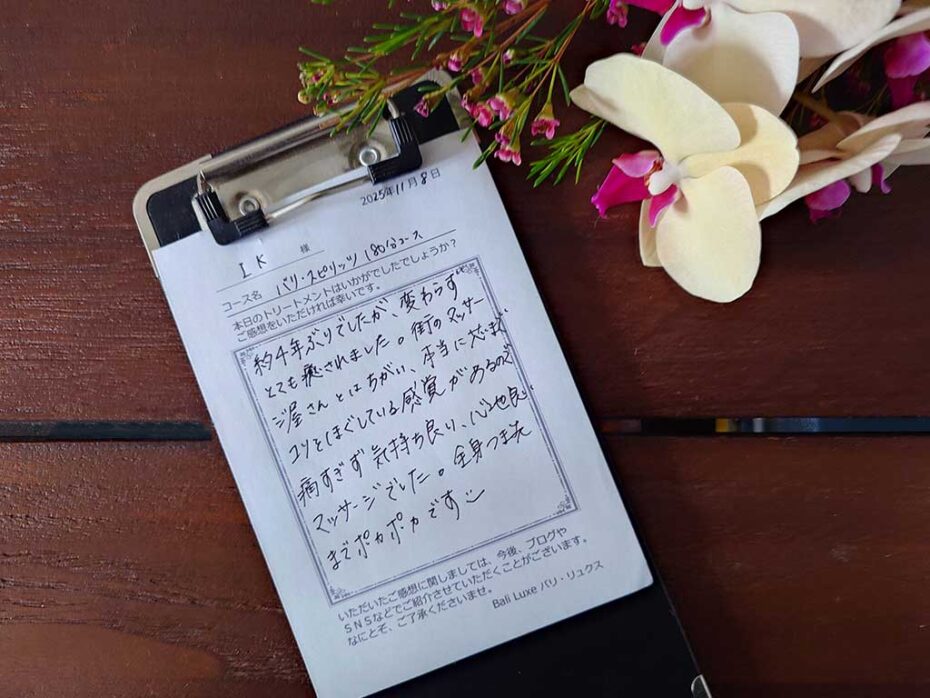 2025年11月8日
IK 様
コース名 バリ・スピリッツ 180分コース
本日のトリートメントはいかがでしたでしょうか？
ご感想をいただければ幸いです。
約4年ぶりでしたが、変わらず
とても癒されました。街のマッサー
ジ屋さんとはちがい、本当に
コリをほぐしている感覚があるのに
痛すぎず気持ち良り、心地良い
マッサージでした。全身つま先
までポカポカです
いただいたご感想に関しましては、今後、ブログや
SNSなどでご紹介させていただくことがございます。
なにとぞ、ご了承くださいませ。
Bali Luxe バリ・リュクス